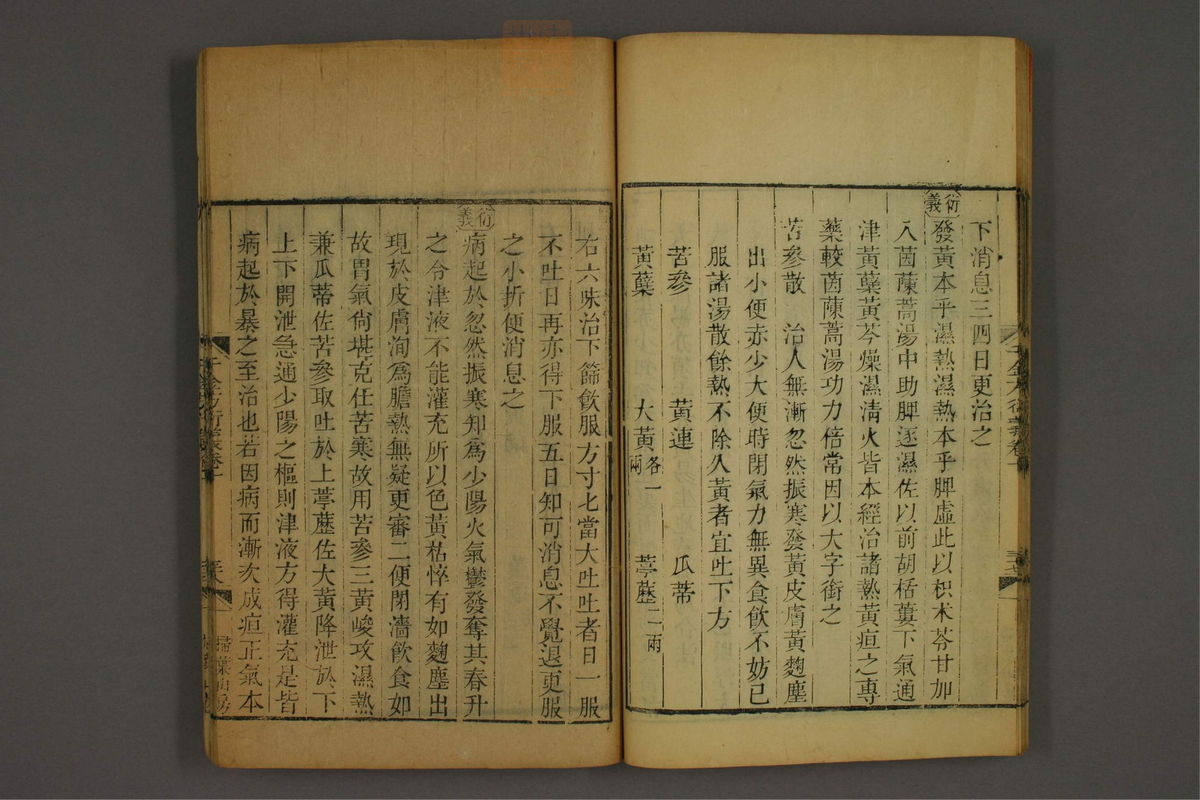 下消息三四日更治之
衍義
發黃本乎濕熱濕熱本乎脾虛此以枳朮芩甘加
入茵蔯蒿湯中助脾逐濕佐以前胡栝蔞下氣通
津黃蘗黃芩燥濕清火皆本經治諸熱黃疸之專
藥較茵蔯蒿湯功力倍常因以大字銜之
苦參散 治人無漸忽然振寒發黃皮膚黃麴塵
出小便赤少大便時閉氣力無異食飲不妨已
服諸湯散餘熱不除久黃者宜吐下方
苦參 黃連 瓜蒂
黃蘗 大黃各一兩 葶藶二兩
右六味治下篩飲服方寸七當大吐吐者日一服
不吐日再亦得下服五日知可消息不覺退更服
之小折便消息之
衍義
病起於忽然振寒知爲少陽火氣鬱發奪其春升
之令津液不能灌充所以色黃枯悴有如麴塵出
現於皮膚洵爲膽熱無疑更審二便閉濇飲食如
故胃氣尙堪克任苦寒故用苦參三黃峻攻濕熱
兼瓜蒂佐苦參取吐於上葶藶佐大黃降泄於下
上下開泄急通少陽之樞則津液方得灌充是皆
病起於暴之至治也若因病而漸次成疸正氣本
千金方衍義卷十
掃葉山房